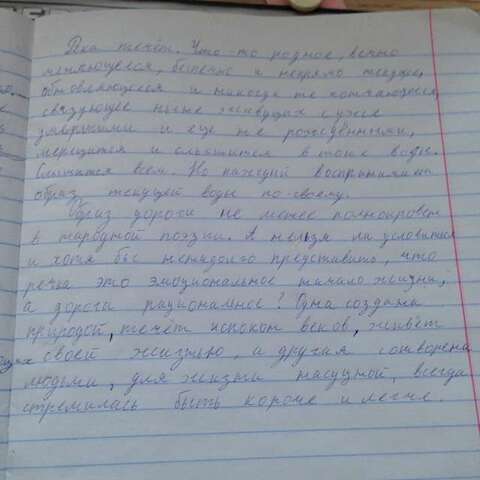 Река течёт. Что-то родное, вечно
меняющееся, бытейно и неправо текуще,
обновляющееся и никогда не кончающееся,
связующее ныне живущих с уже
умершими и ещё не рождёнными,
мерещится и слышится в токе воды.
Слышится всем. Но каждый воспринимает
образ текущей воды по-своему.
Образ дороги не менее полнокровен
в народной поэзии. А нельзя ли условиться
и хотя бы ненадолго представить, что
речка это эмоциональное начало жизни,
а дорога рациональное? Одна создана
природой, течёт испокон веков, живёт
своей жизнью, а другая сотворена
людьми, для жизни насущной, всегда
стремилась быть короче и легче.